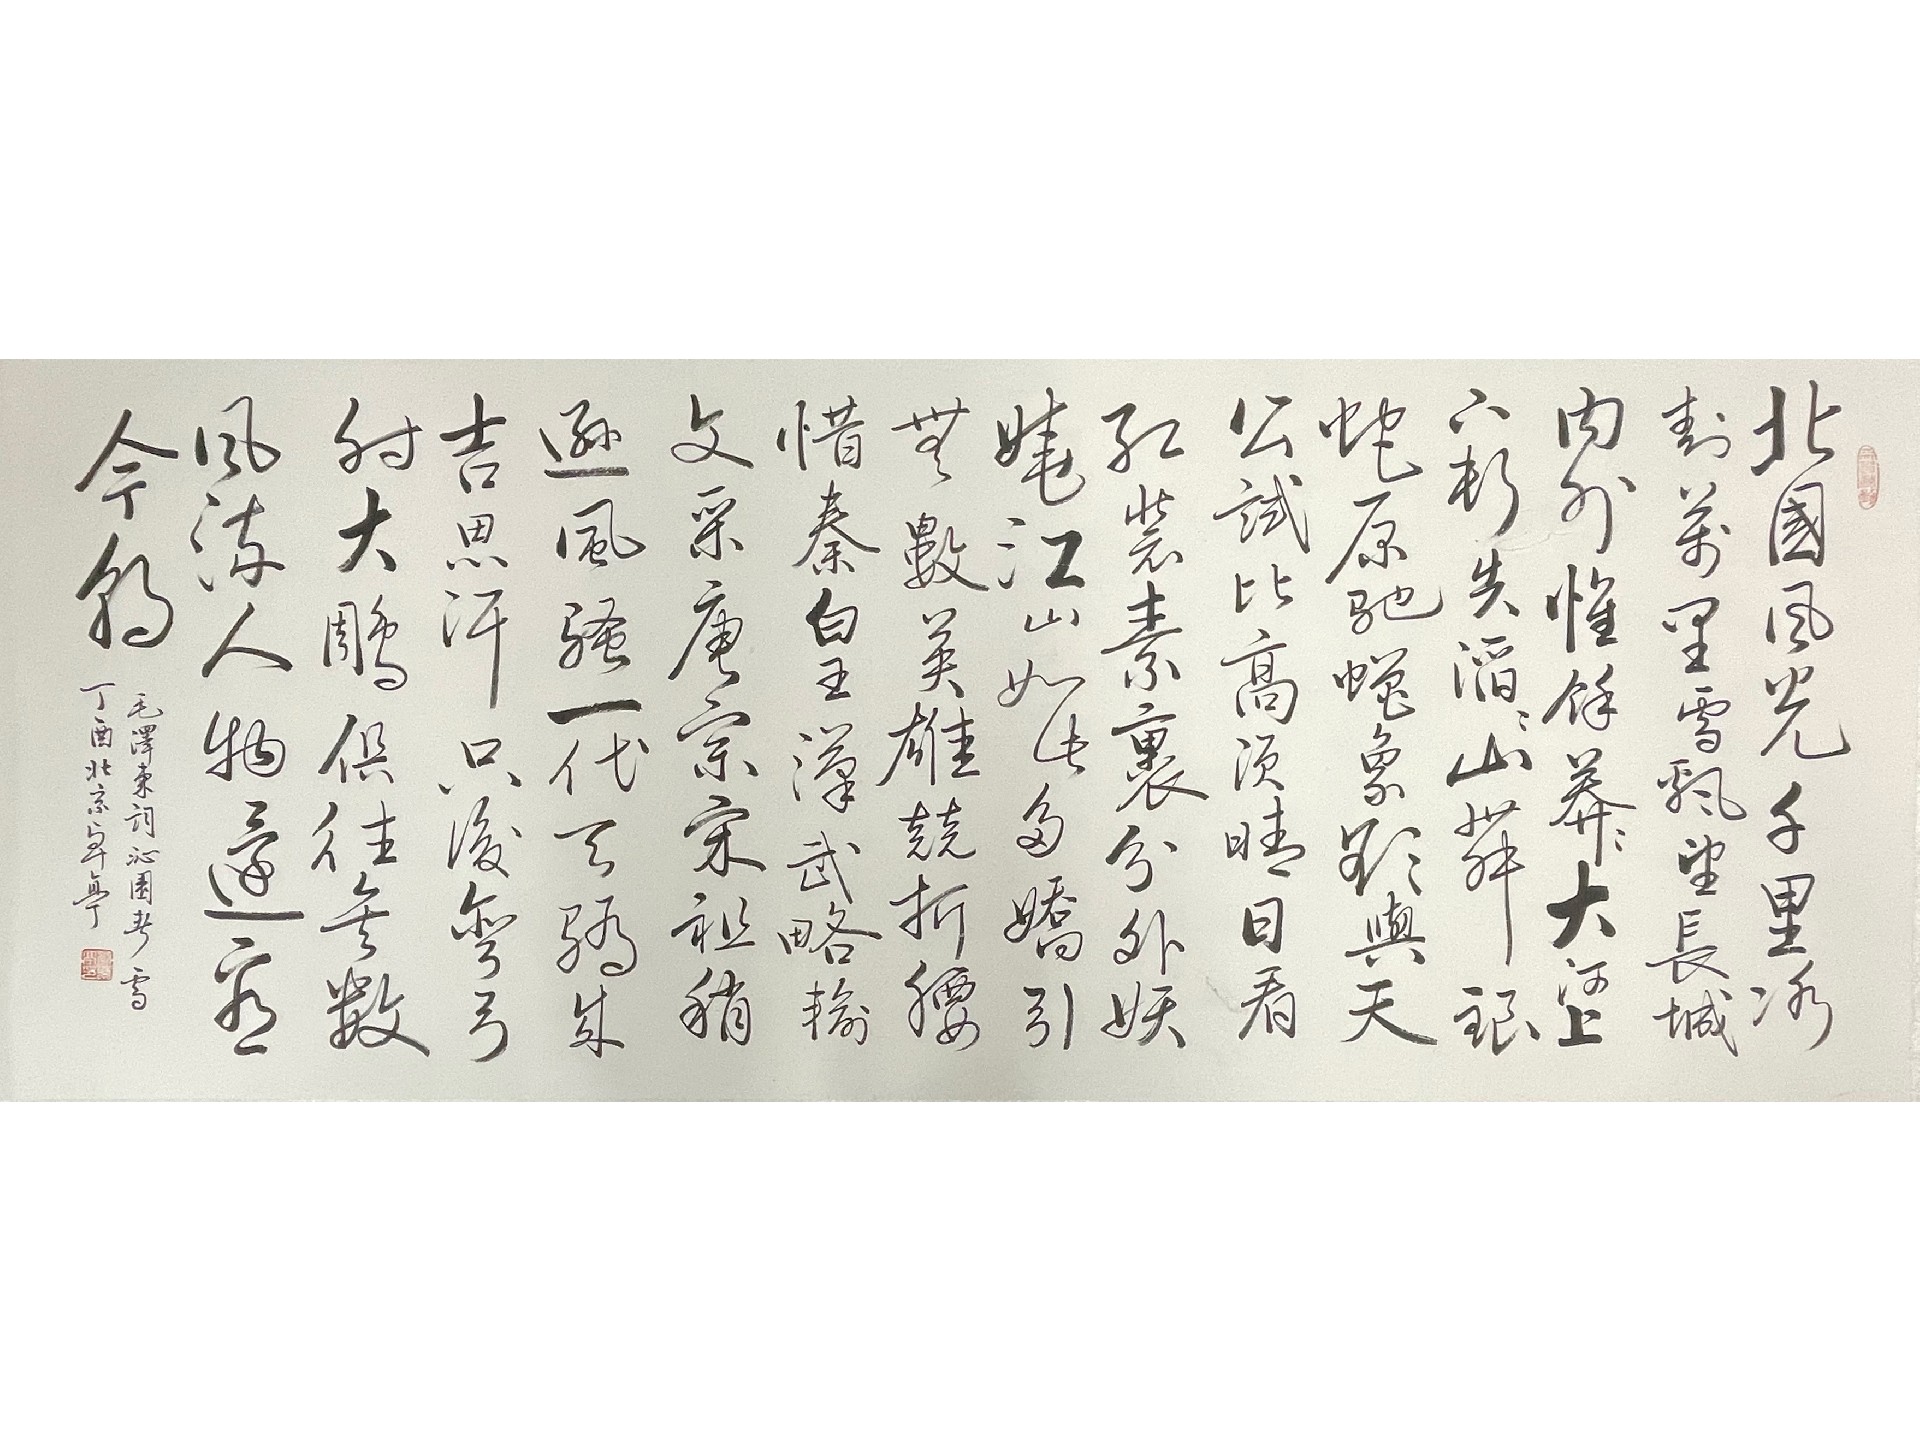 北國風光千里冰
封萬里雪飄望長城
内外惟餘莽〻大河上
下頓失滔〻山舞銀
蛇原馳蠟象欲與天
公試比高須晴日看
紅裝素裹分外妖
嬈江山如此多嬌引
無數英雄競折腰
惜秦皇漢武略輸
文采唐宗宋祖稍
遜風騷一代天驕成
吉思汗只識彎弓
射大鵰俱往矣數
風流人物還看
今朝
毛澤東詞沁園春雪
丁酉北京亭